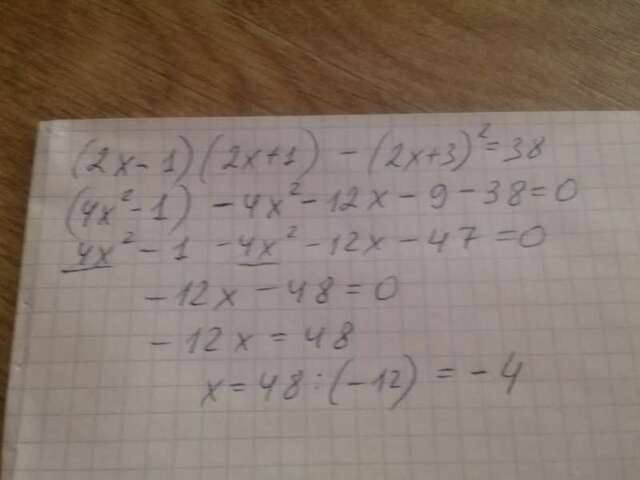 (2x-1)(2x+1) - (2x+3)² = 38
(4x²-1) - 4x² - 12x - 9 - 38 = 0
4x² - 1 - 4x² - 12x - 47 = 0
- 12x - 48 = 0
- 12x = 48
x = 48 : (-12) = - 4